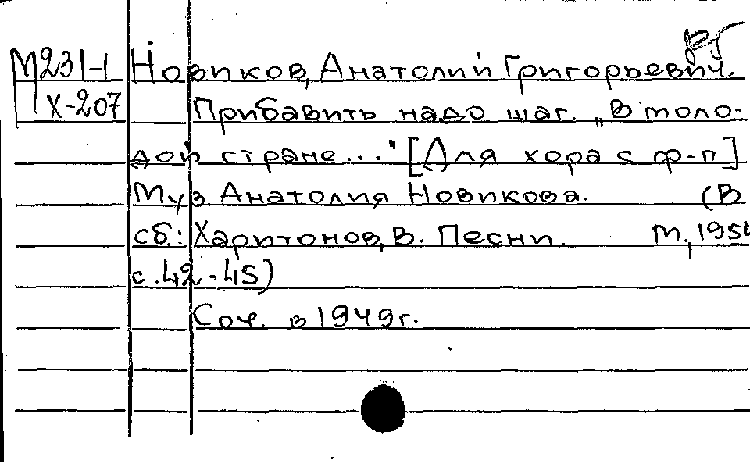 М231-1 Новиков, Анатолий Григорьевич.
Х-207 Прибавить надо шаг. „В моло-
дой стране..." [Для хора с ф-п]
Муз. Анатолия Новикова. (В
сб: Харитонов, В. Песни. М, 195
с. 42-45)
Соч. в 1949г.